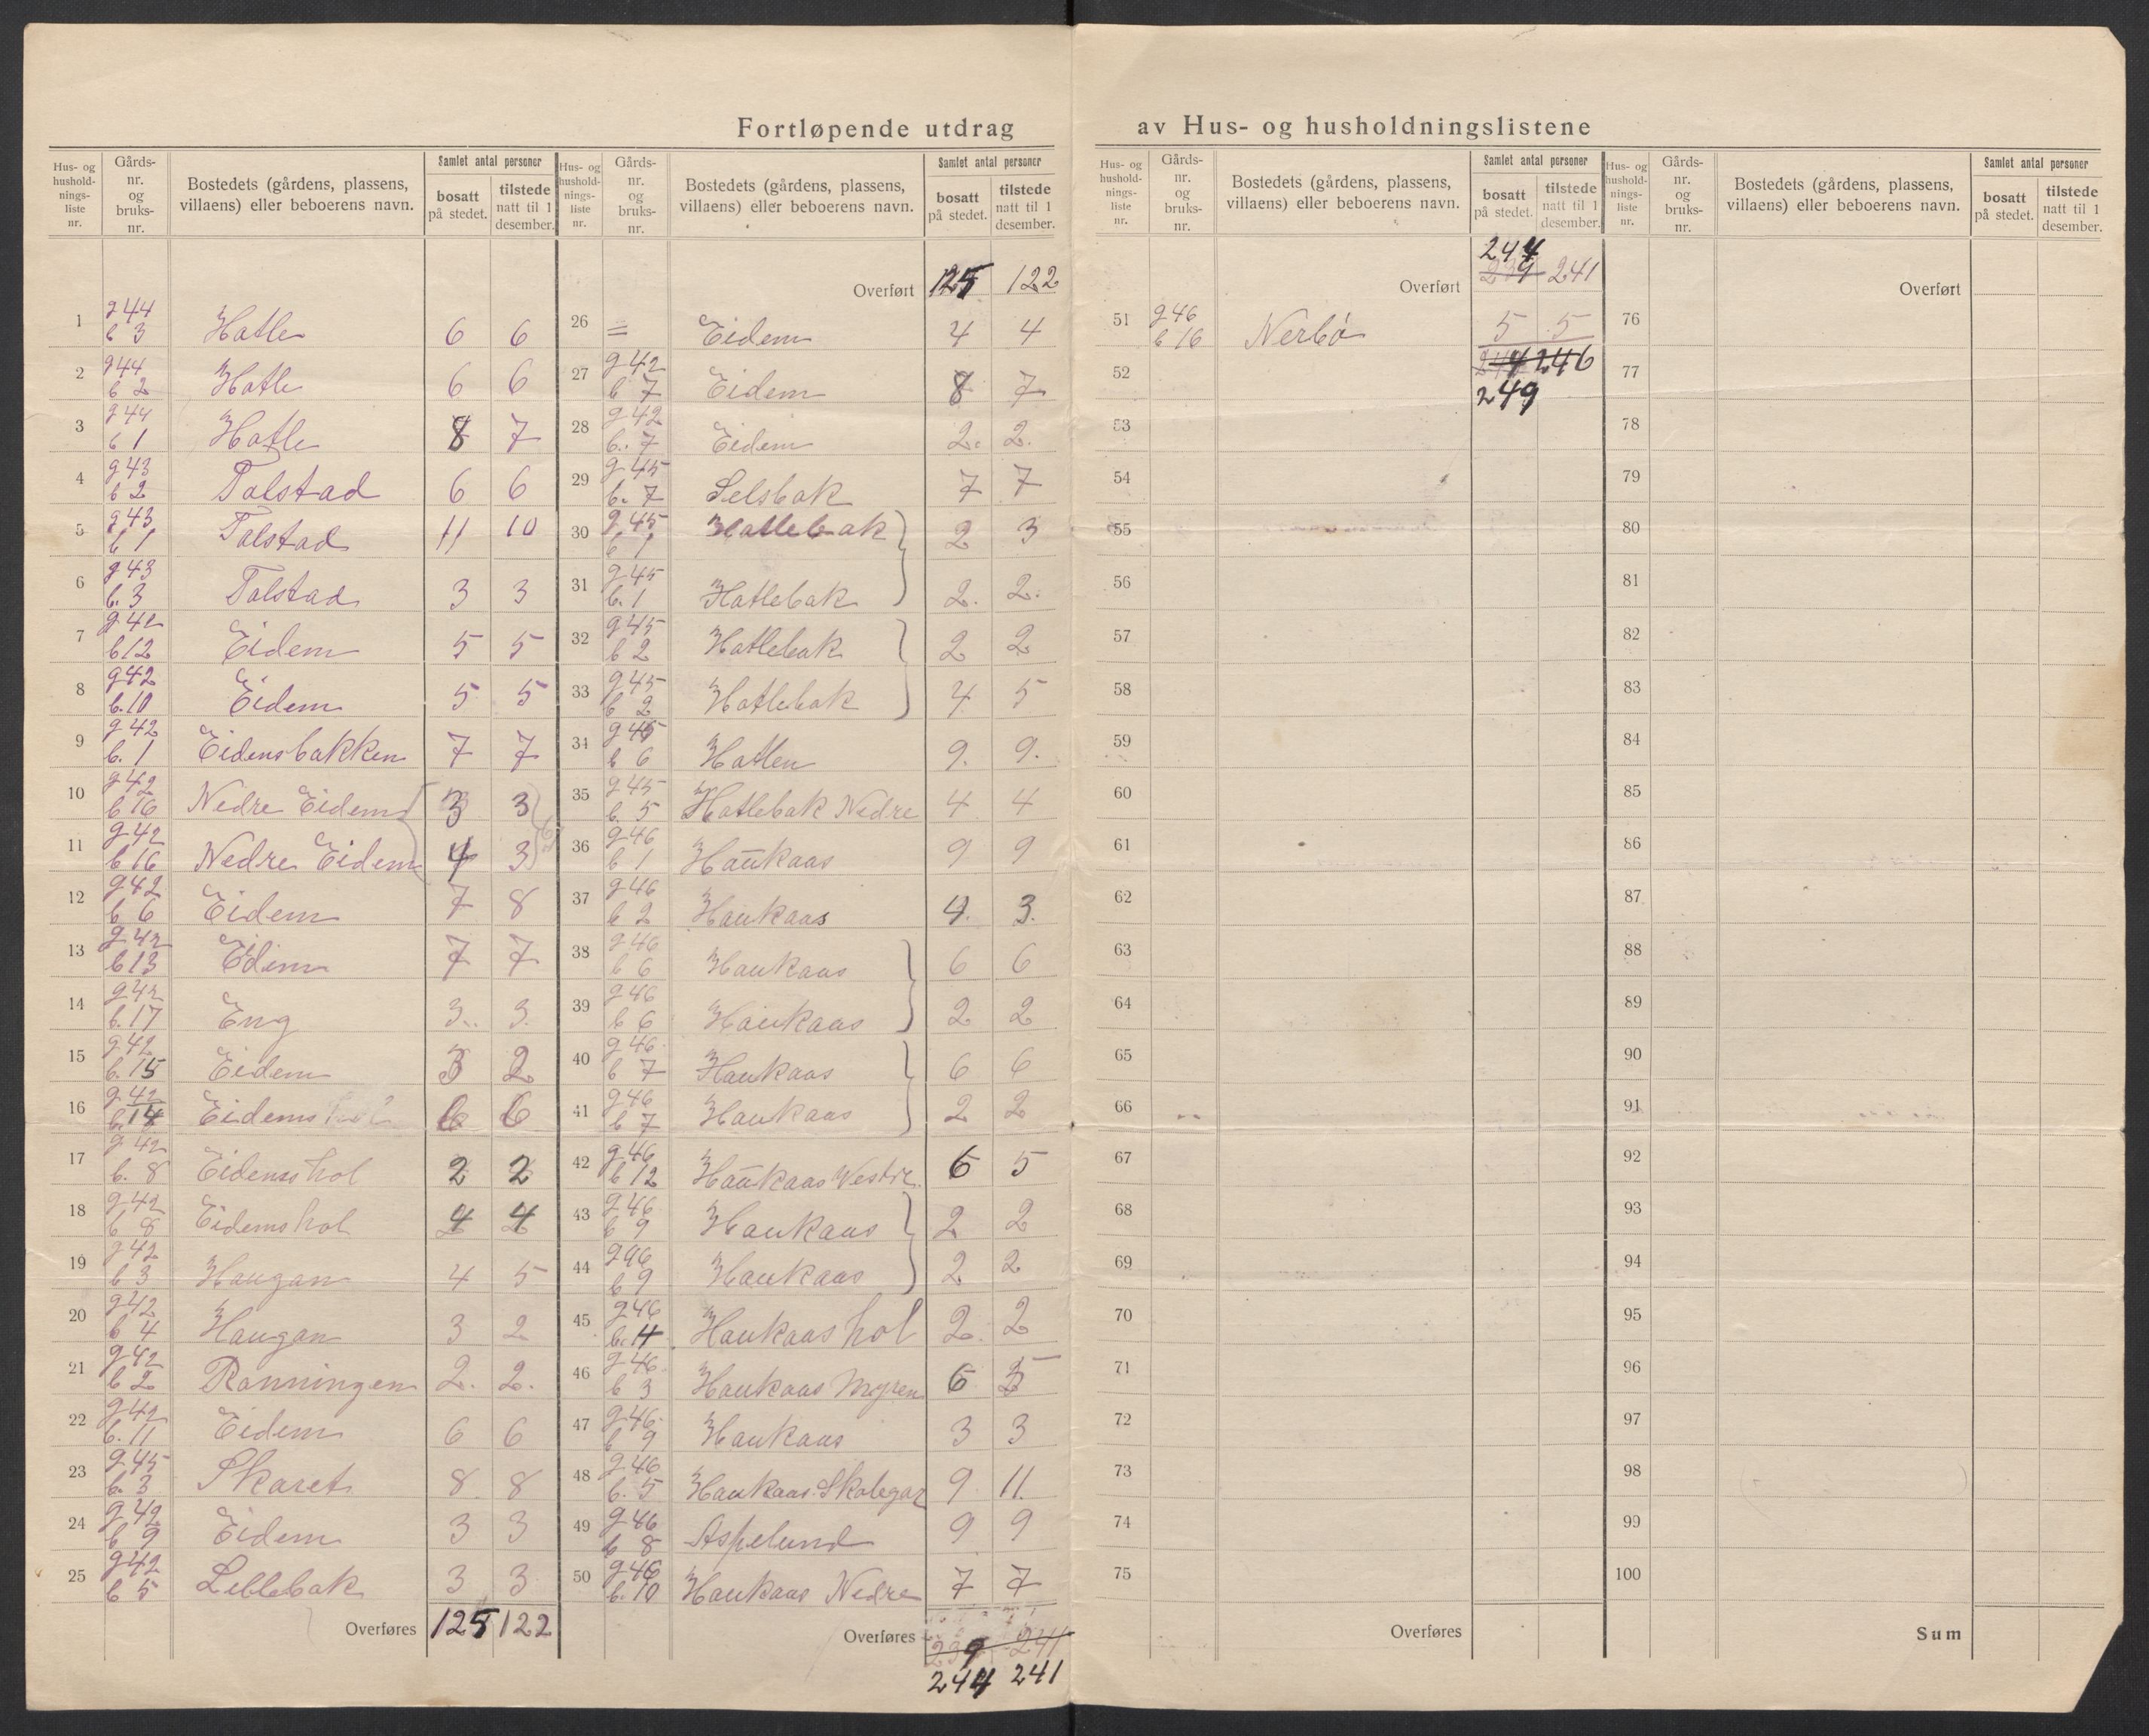 Fortløpende utdrag av Hus- og husholdningslistene
Hus- og hushold-nings-liste nr. Gårds-nr. og bruks-nr. Bostedets (gårdens, plassens, villaens) eller beboerens navn. Samlet antal personer bosatt på stedet. tilstede natt til 1 desember.
1 g 44 b 3 Hatle 6 6
2 g 44 b 2 Hatle 6 6
3 g 44 b 1 Hatle 8 7
4 g 43 b 2 Talstad 6 6
5 g 43 b 1 Talstad 11 10
6 g 43 b. 3 Talstad 3 3
7 g 42 b 12 Eidem 5 5
8 g 42 b. 10 Eidem 5 5
9 g 42 b. 1 Eidensbakken 7 7
10 g 42 b 16 Nedre Eidem 3 3
11 g 42 b 16 Nedre Eidem 4 3
12 g 42 b 6 Eidem 7 8
13 g 42 b 13 Edem 7 7
14 g 42 b. 17 Eng 3 3
15 g 42 b. 15 Eidem 3 2
16 g 42 b. 14 Eidems 6 6
17 g 42 b. 8 Eidemshol 2 2
18 g 42 b 8 Eidemshol 4 4
19 g 42 b 3 Haugan 4 5
20 g 42 b 4 Haugan 3 2
21 g 42 b 2 Rønningen 2. 2.
22 g 42 b. 11 Eidem 6 6
23 g 45 b. 3 Skaret 8 8
24 g 42 b 9 Eidem 3 3
25 g 42 b 5 Lillebak 3 3
Overføres 125 122
Hus- og hushold-nings-liste nr. Gårds-nr. og bruks-nr. Bostedets (gårdens, plassens, villaens) eller beboerens navn. Samlet antal personer bosatt på stedet. tilstede natt til 1 desember.
Overført 125 122
26 = Eidem 4 4
27 g 42 b 7 Eidem 8 7
28 g 42 b. 7 Eidem 2. 2.
29 g 45 b. 7 Selsbak 7 7
30 g 45 b 1 Hatlebak 2 3
31 g 45 b. 1 Hatlebak 2. 2.
32 g 45 b 2 Hatlebak 2 2
33 g 45 b 2 Hatlebak 4 5
34 g 45 b 6 Hatlen 9. 9.
35 g 45 b. 5 Hatlebak Nedre 4 4
36 g 46 b 1 Haukaas 9 9
37 g 46 b 2 Haukaas 4. 3.
38 g 46 b 6 Haukaas 6 6
39 g 46 b 6 Haukaas 2 2
40 g 46 b 7 Haukaas 6 6
41 g 46 b 7 Haukaas 2 2
42 g 46 b 12 Haukaas Vestre 6 5
43 g 46 b 9 Haukaas 2 2
44 g 46 b 9 Haukaas 2 2
45 g 46 b. 4 Haukaashol 2. 2
46 g 46 b 3 Haukaas Myren 6 5
47 g 46 b 9 Haukaas 3 3
48 g 46 b. 5 Haukaas Skolegar 9 11.
49 g 46 b 8 Aspelund 9 9
50 g 46 b. 10 Haukaas Nedre 7 7
Overføres 239 241
244 241
Hus- og hushold-nings-liste nr. Gårds-nr. og bruks-nr. Bostedets (gårdens, plassens, villaens) eller beboerens navn. Samlet antal personer bosatt på stedet. tilstede natt til 1 desember.
244
Overført 239 241
51 g 46 b 16 Nerbø 5 5
52 244 246
249
53
54
55
56
57
58
59
60
61
62
63
64
65
66
67
68
69
70
71
72
73
74
75
Overføres
Hus- og hushold-nings-liste nr. Gårds-nr. og bruks-nr. Bostedets (gårdens, plassens, villaens) eller beboerens navn. Samlet antal personer bosatt på stedet. tilstede natt til 1 desember.
Overført
76
77
78
79
80
81
82
83
84
85
86
87
88
89
90
91
92
93
94
95
96
97
98
99
100
Sum